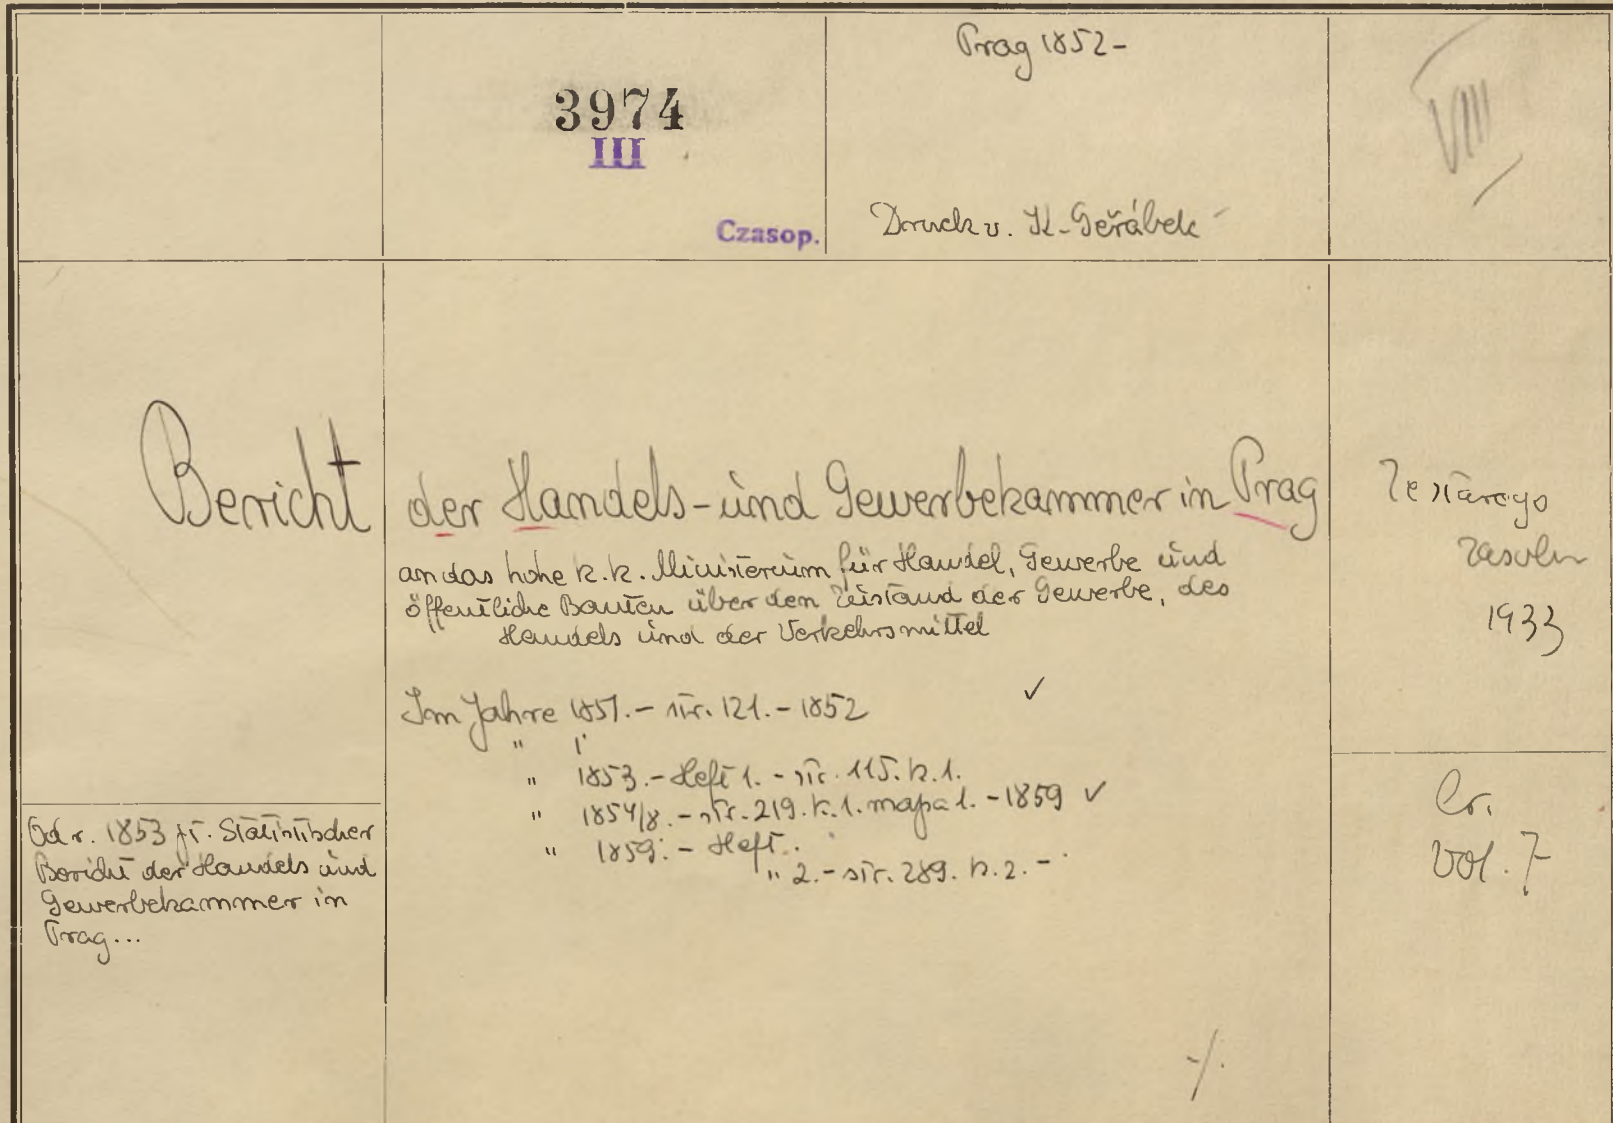 Prag 1852-
3974
III
Czasop.
Druck v. K. Geřábek
VIII
Bericht der Handels- und Gewerbekammer in Prag
an das hohe k.k. Ministerium für Handel, Gewerbe und
öffentliche Bauten über den Zustand der Gewerbe, des
Handels und der Verkehrsmittel
Im Jahre 1851. - str. 121. - 1852 ✓
" 1
" 1853. - Heft 1. - str. 115. k. 1.
" 1854/8. - str. 219. k. 1. mapa 1. - 1859 ✓
" 1859. - Heft.
" 2. - str. 289. k. 2. -
Od r. 1853 pt. Statistischer
Bericht der Handels und
Gewerbekammer in
Prag...
Ze starego
zasobu
1933
Cr.
Vol. 7
-/.